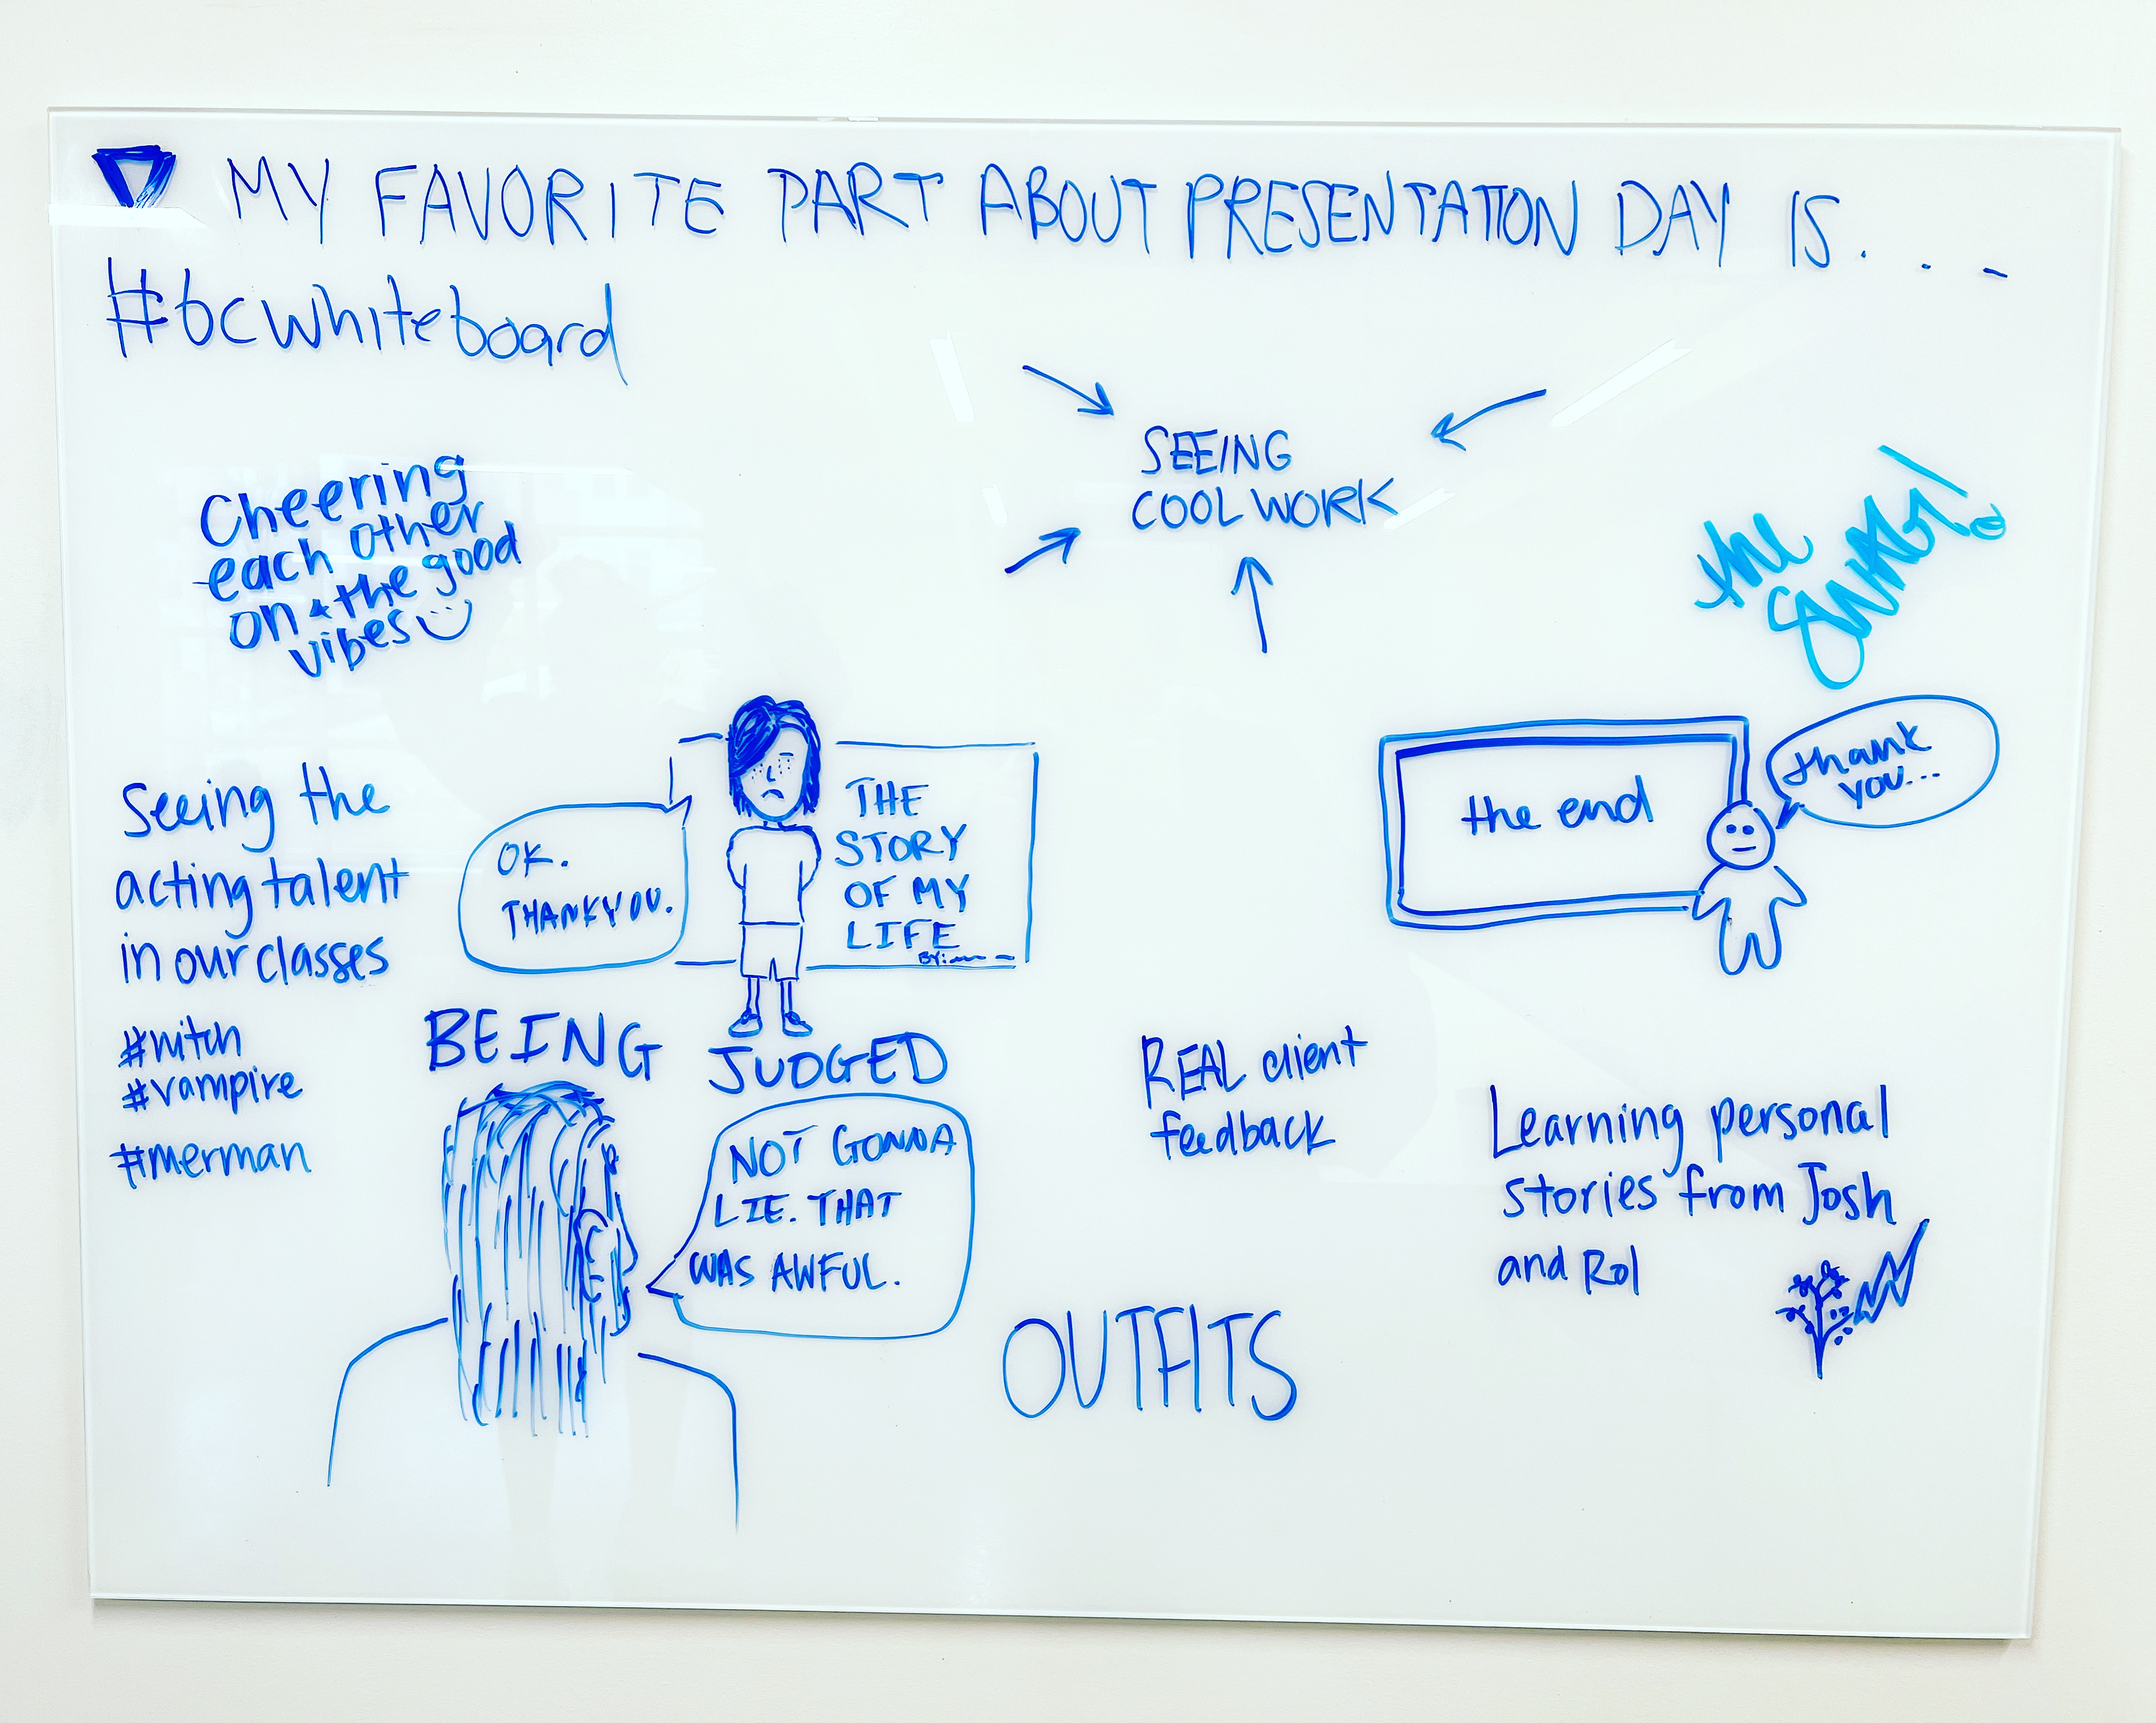 MY FAVORITE PART ABOUT PRESENTATION DAY IS....
#bcwhiteboard
SEEING
COOL WORK
Cheering
each other
on & the good
vibes
the
Seeing the
acting talent
in our classes
#witch
#vampire
#merman
OK.
THANK YOU.
THE
STORY
OF MY
LIFE
BY:
BEING JUDGED
NOT GONNA
LIE. THAT
WAS AWFUL.
the end
thank
you...
REAL client
feedback
Learning personal
stories from Josh
and Rol
OUTFITS